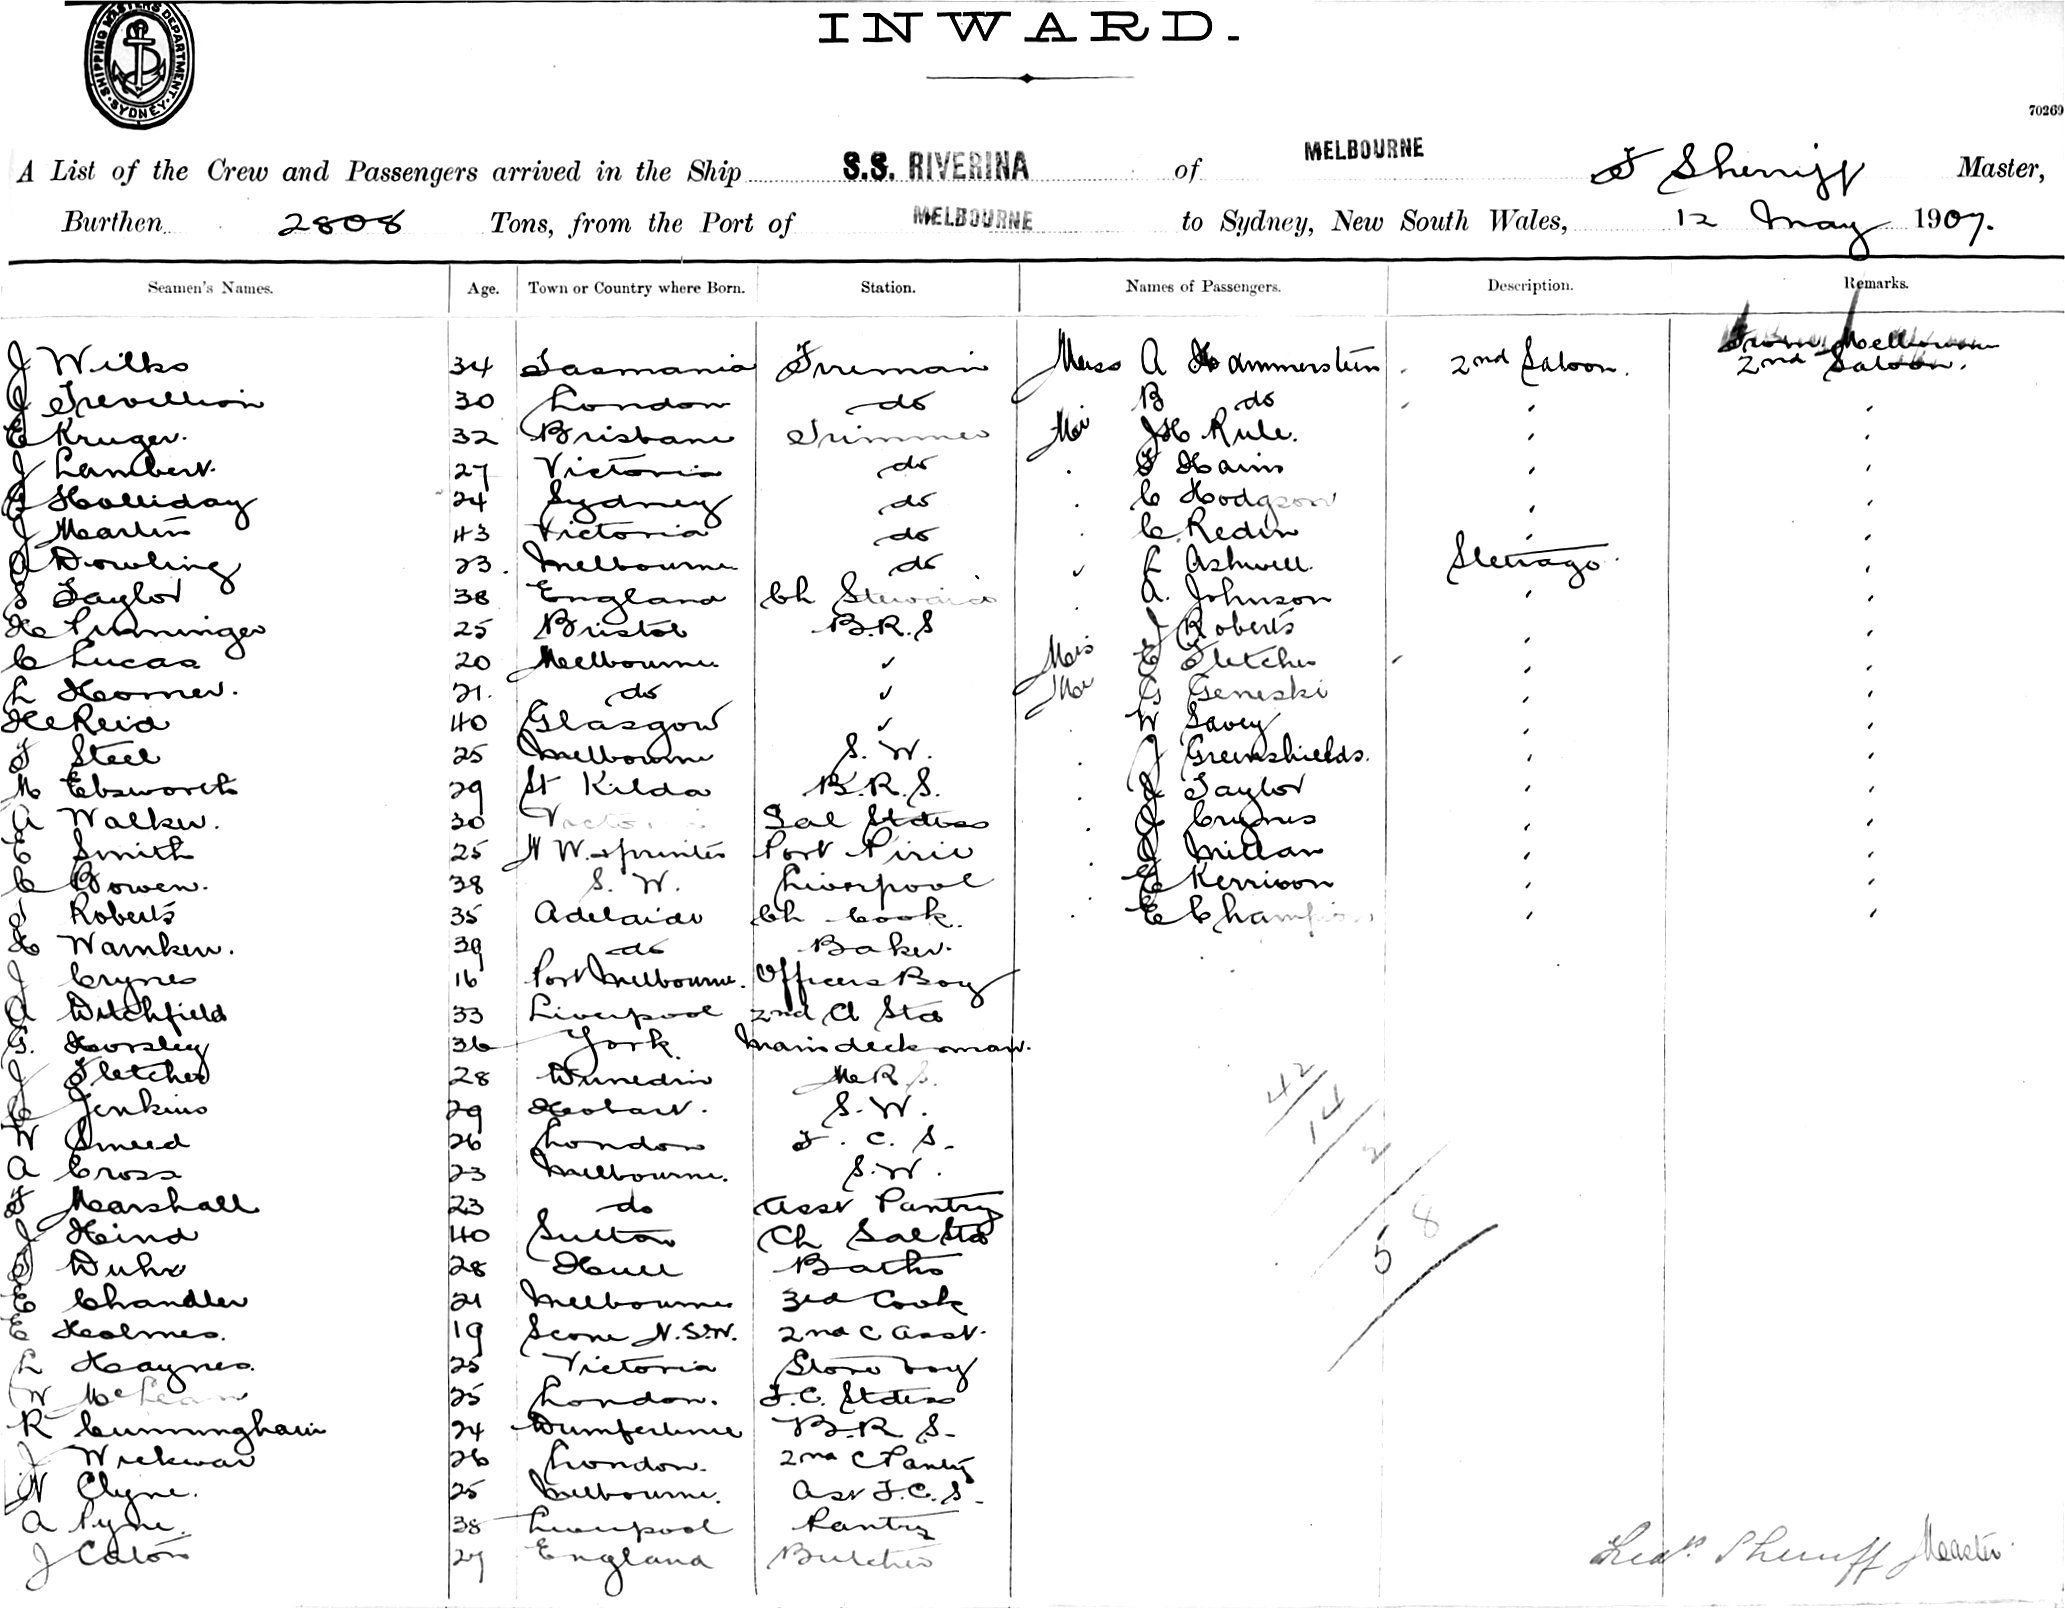 SHIPPING MASTERS DEPARTMENT. SYDNEY.
INWARD.
70269
A List of the Crew and Passengers arrived in the Ship S.S. RIVERINA of MELBOURNE F Sherriff Master,
Burthen 2808 Tons, from the Port of MELBOURNE to Sydney, New South Wales, 12 May 1907.
Seamen's Names. Age. Town or Country where Born. Station. Names of Passengers. Description. Remarks.
J Wilks 34 Tasmania Fireman Miss A Hammerstein 2nd Saloon. 2nd Saloon.
J Trevillion 30 London do B do
E Kruger. 32 Brisbane Trimmer Mr J H Rule.
J Lambert. 27 Victoria do F Hains
Holliday 24 Sydney do C Hodgson
J Martin 43 Victoria do C Redin
A Dowling 23. Melbourne do L Ashwell. Steerage
S Taylor 38 England Ch Steward A. Johnson
H 25 Bristol B.R.S J Roberts
C Lucas 20 Melbourne Mrs E Fletcher
L Horner. 21. do Mr G Geneski
H Reid 40 Glasgow W Savey
F Steel 25 Melbourne S. W. J Greenshields.
M Ebsworth 29 St Kilda B.R.S. Taylor
A Walker. 30 Victoria Sal Stdess J Crynes
E Smith 25 Port Pirie J Millar
C Bowen. 38 S. W. Liverpool E Kerrison
J Roberts 35 Adelaide Ch Cook. E Champion
H Warnken. 39 do Baker.
J Crynes 16 Port Melbourne. Officers Boy
A Ditchfield 33 Liverpool 2nd Cl Std
G. Horsley 36 York Maindecksman.
J Fletcher 28 Dunedin M R S.
C Jenkins 29 Hobart. S. W.
W Smeed 26 London F. C. S.
A Cross 23 Melbourne. S. W.
F Marshall 23 do Asst Pantry
J Hind 40 Sutton Ch Sal Std
Duhr 28 Hull Baths
E Chandler 21 Melbourne 3rd Cook
E Holmes. 19 Scone N.S.W. 2nd C Asst.
L Haynes. 25 Victoria Store boy
W McLean 25 London. F.C. Stdess
R Cunningham 24 Dumferline B. R S.
J Wickwar 26 London. 2nd C Pantry
W Clyne. 25 Melbourne. Asst F.C. S.
A Pyne. 38 Liverpool Pantry
J Caton 27 England Butcher
42
14
2
58
Fredk Sherriff Master